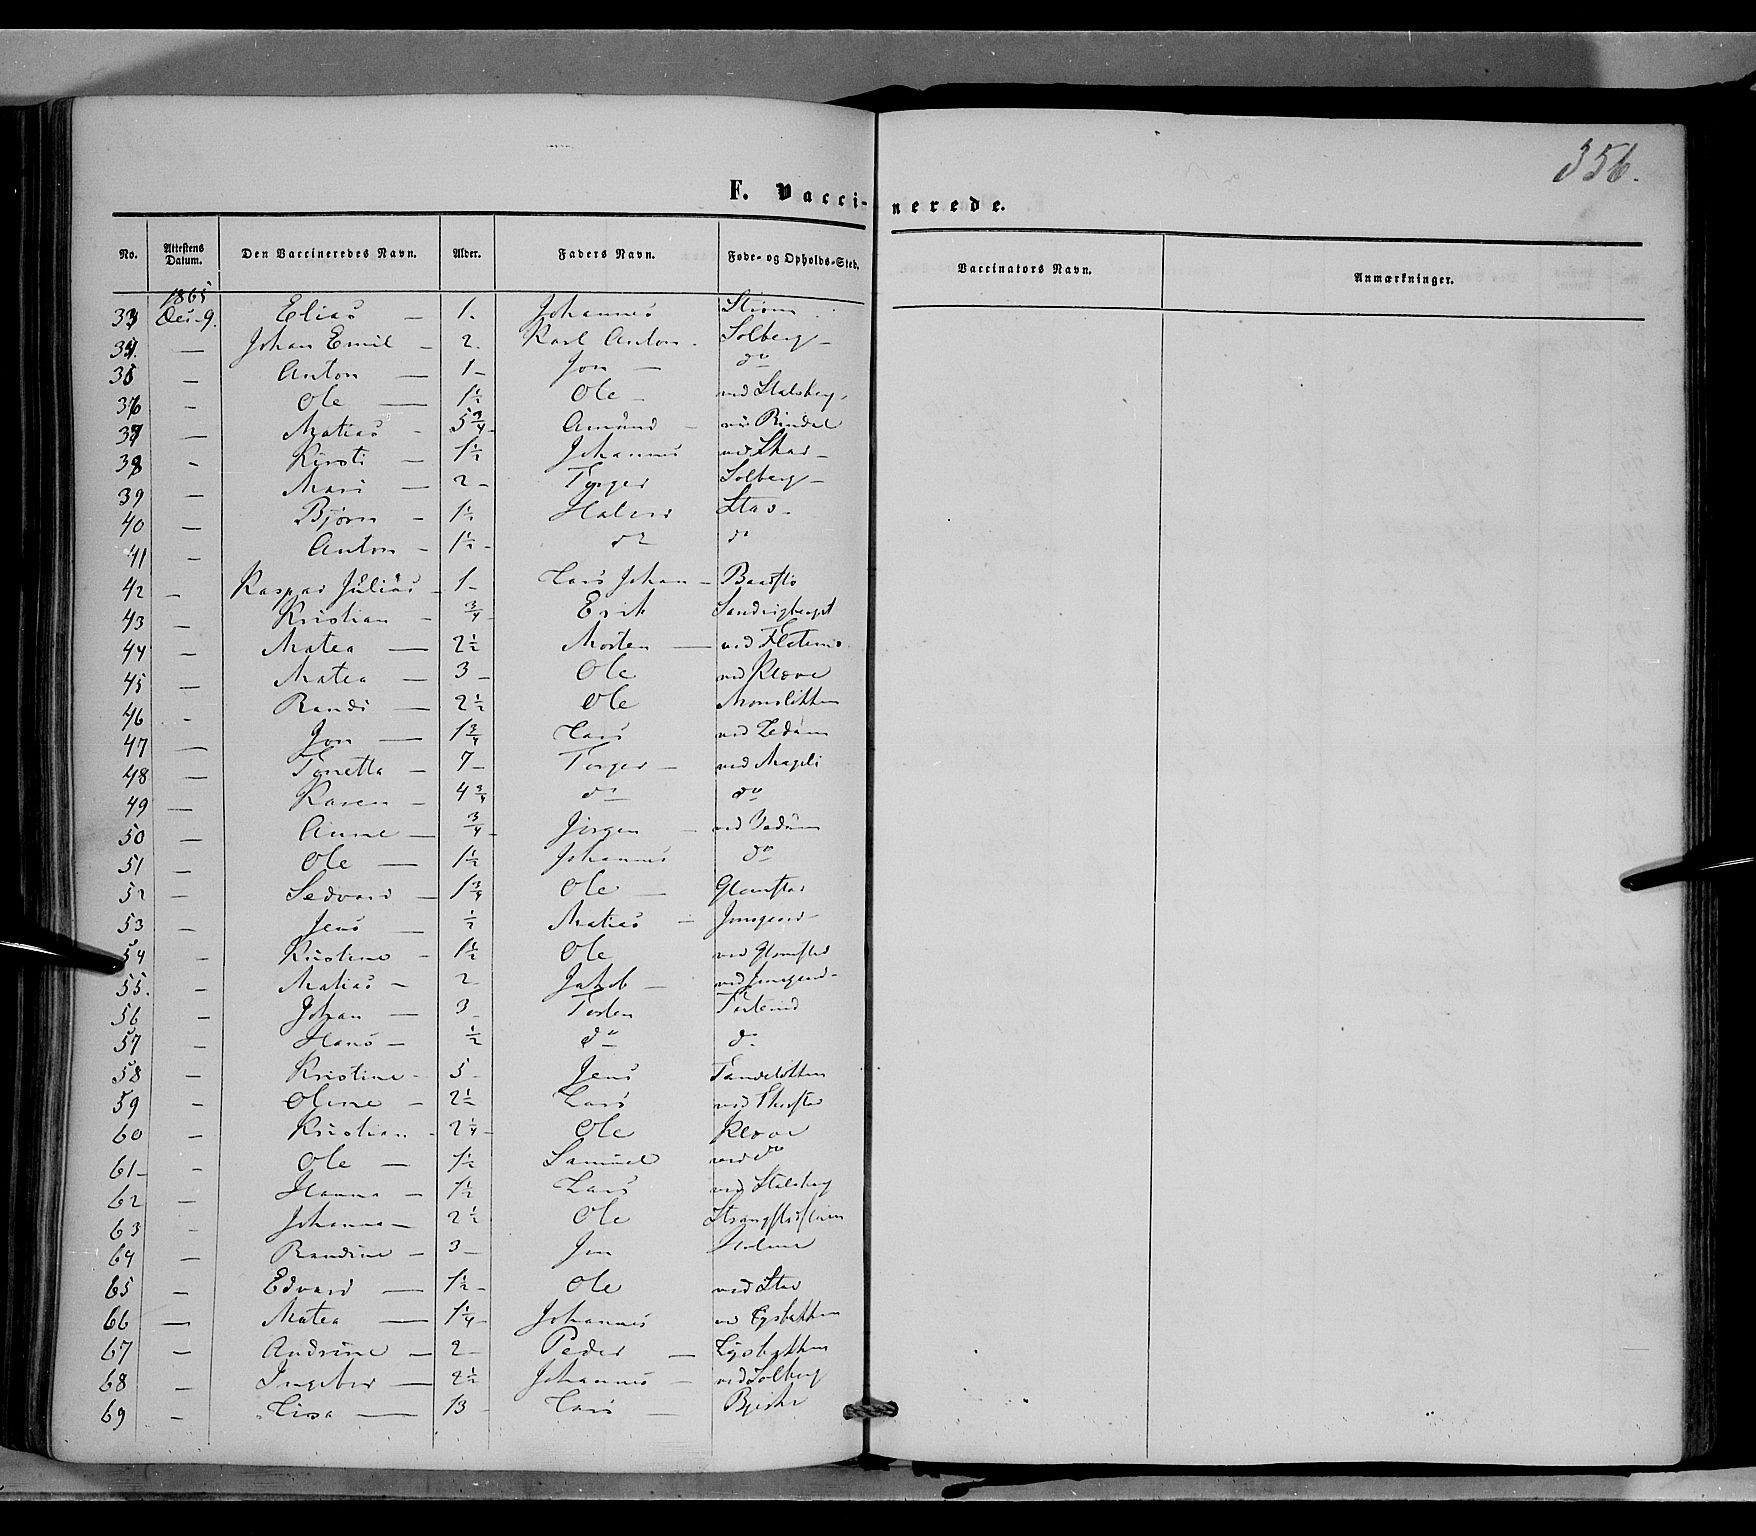 356.
F. Vaccinerede.
No. Attestens Datum. Den Vaccineredes Navn. Alder. Faders Navn. Føde- og Opholds-Sted. Vaccinators Navn. Anmærkninger.
1865
33 Dec. 9. Elias — 1. Johannes
34. — Johan Emil — 2. Karl Anton. Solberg —
35 — Anton — 1 — Jon — do
36 — Ole — 1½ Ole — ved Stalsberg.
37 — Matias — 5¾ — Amund — Rindal
38 — Kirsti — 1½ Johannes ved Skar —
39 — Mari — 2 — Torger Solberg —
40 — Bjørn — 1½ Halvor Stav —
41 — Anton — 1½ — do do
42 — Kaspar Julius — 1 — Lars Johan —
43 — Kristian — ¾ — Erik
44 — Matea — 2½ Morten — ved
45 — Matea — 3 — Ole ved Kløve
46 — Randi — 2½ Ole
47 — Jon — 1¾ Lars ved
48 — Tonetta — 7 — Torger — ved Mageli
49 — Karen — 4¾ do do
50 — Anne — ¾ — Jørgen — ved
51 — Ole — 1½ Johannes do
52 — Sedvard — 1¾ Ole — Glomstad
53 — Jens — ½ Matias —
54 — Kristine — 1½ Ole ved Glomstad
55. — Matias — 2 Jakob — ved
56 — Johan — 3 — Torsten
57 — Hans — ½ do do
58 — Kristine — 5 — Jens
59 — Oline — 2½ Lars ved
60 — Kristian — 2¼ — Ole Kløve
61 — — Ole — 1½ Samuel ved do
62 — Hanna — 1½ Lars ved Stalsberg
63 — Johanna — 2½ Ole
64 — Randine — 3 — Jon
65 — Edvard — 1½ — Ole ved Stav
66 — Matea — 1¼ — Johannes
67 — — Andrine — 2 — Peder —
68 — Ingebor — 2½ Johannes — ved Solberg
69 — Lisa — 13 — Lars —